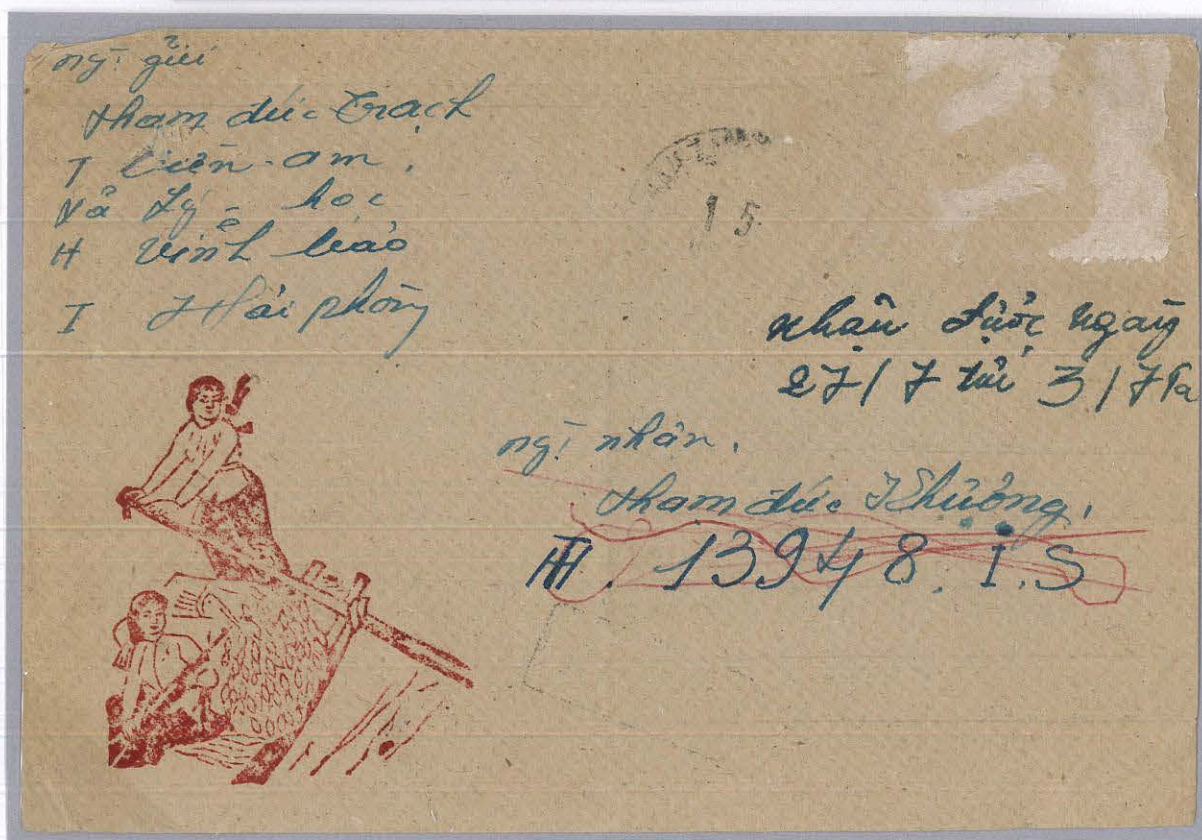 ngị gửi
Phạm đức Trạch
T Liên-am.
Xã Lý - học
H Vĩnh bảo
T Hải phòng
15
nhận được ngày
27/7 tải 3/7
ngị nhân.
Phạm đức Khưởng.
HT. 13948. I.S